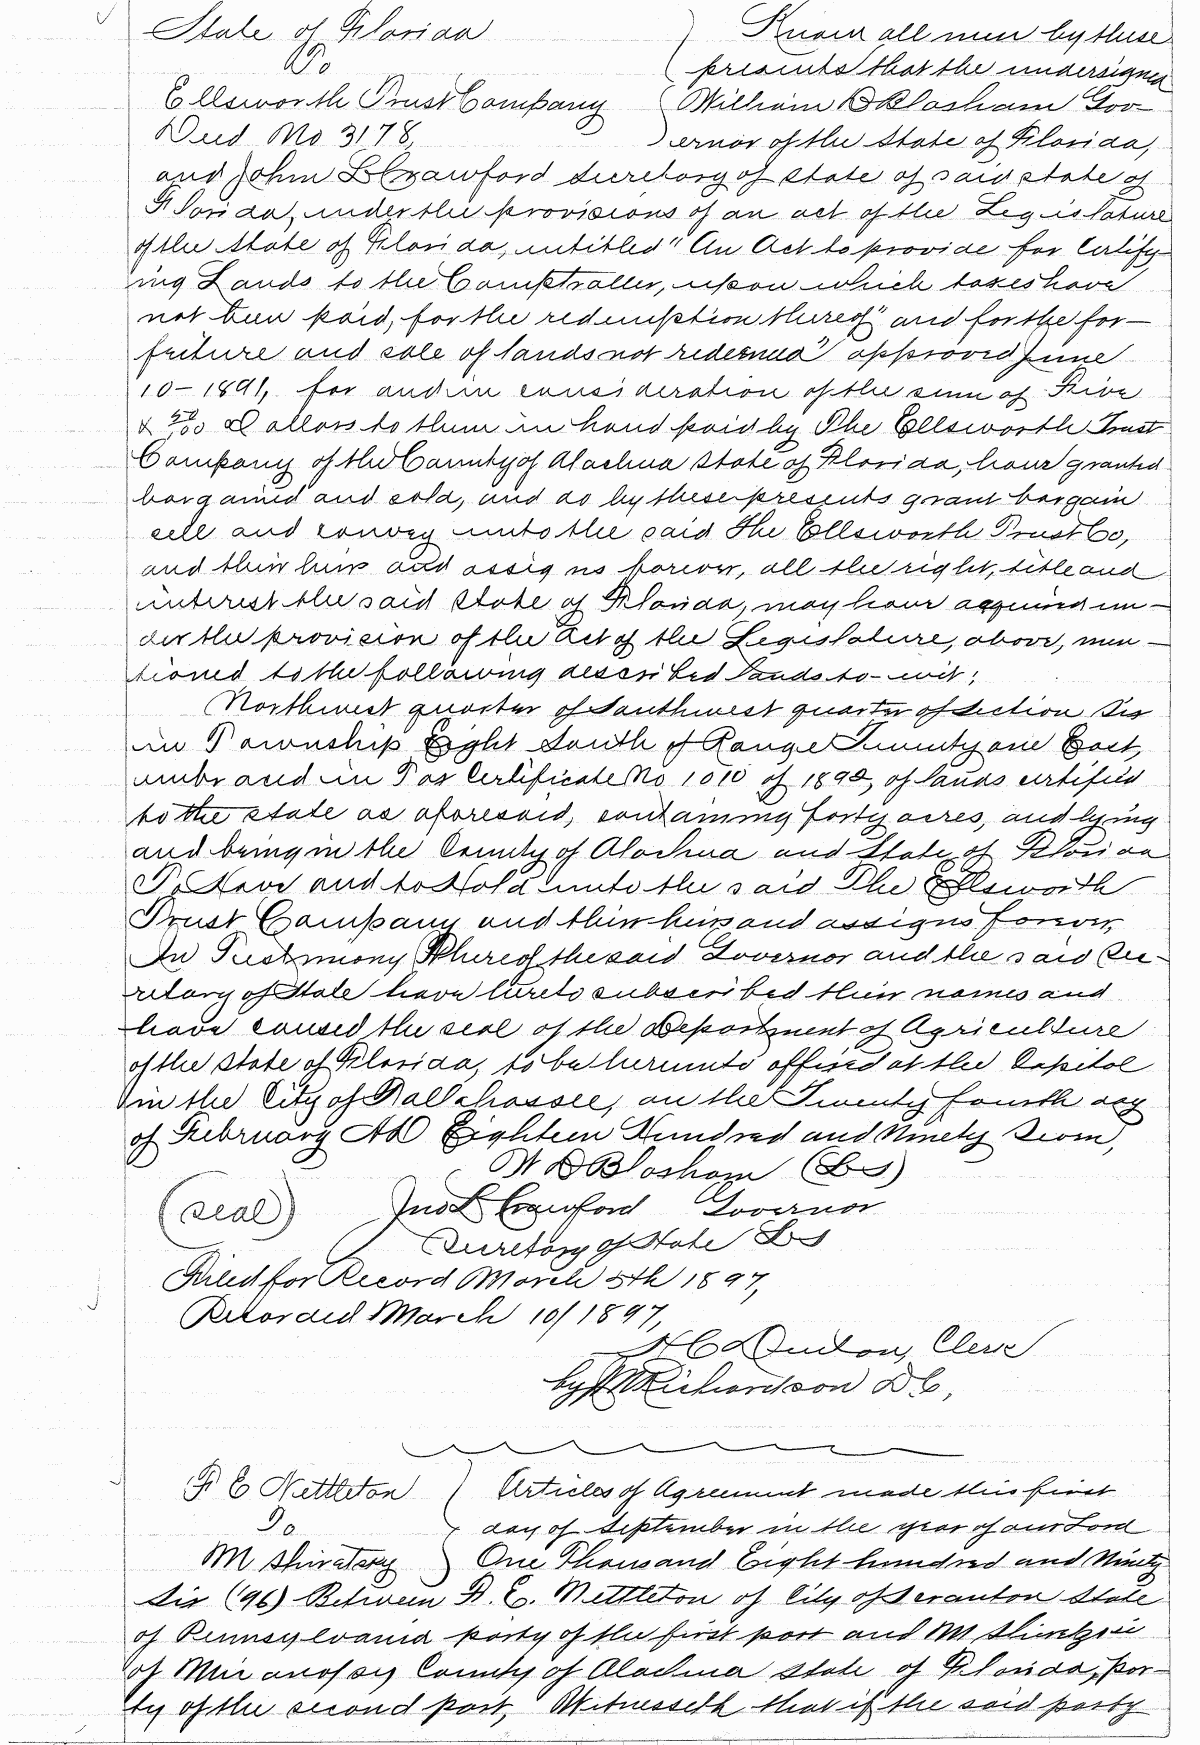 State of Florida
To
Ellsworth Trust Company
Deed No 3178,
Know all men by these
presents that the undersigned
William D Bloxham Gov-
ernor of the State of Florida,
and John L Crawford Secretary of State of said State of
Florida, under the provisions of an act of the Legislature
of the State of Florida, entitled "An Act to provide for Certify-
ing Lands to the Comptroller, upon which taxes have
not been paid, for the redemption thereof" and for the for-
feiture and sale of lands not redeemed" approved June
10-1891, for and in consideration of the sum of Five
& 50/100 Dollars to them in hand paid by The Ellsworth Trust
Company of the County of Alachua State of Florida, have granted
bargained and sold, and do by these presents grant bargain
sell and convey unto the said The Ellsworth Trust Co,
and their heirs and assigns forever, all the right, title and
interest the said State of Florida, may have acquired un-
der the provision of the Act of the Legislature, above, men-
tioned to the following described lands to-wit:
Northwest quarter of Southwest quarter of Section Six
in Township Eight South of Range Twenty one East,
embraced in Tax Certificate No 1010 of 1892, of lands certified
to the state as aforesaid, containing forty acres, and lying
and being in the County of Alachua and State of Florida
To Have and to Hold unto the said The Ellsworth
Trust Company and their heirs and assigns forever,
In Testimony Whereof the said Governor and the said Sec-
retary of State have hereto subscribed their names and
have caused the seal of the Department of Agriculture
of the State of Florida, to be hereunto affixed at the Capitol
in the City of Tallahassee, on the Twenty fourth day
of February AD Eighteen Hundred and Ninety Seven,
W D Bloxham (LS)
(seal) Jno L Crawford Governor
Secretary of State LS
Filed for Record March 5th 1897,
Recorded March 10/1897,
H C Denton, Clerk
by Richardson D C,
R E Nettleton
To
M Shiratsky
Articles of Agreement made this first
day of September in the year of our Lord
One Thousand Eight hundred and Ninety
Six ('96) Between R. E. Nettleton of City of Scranton State
of Pennsylvania party of the first part and M
of Micanopy County of Alachua State of Florida, par-
ty of the second part, Witnesseth that if the said party